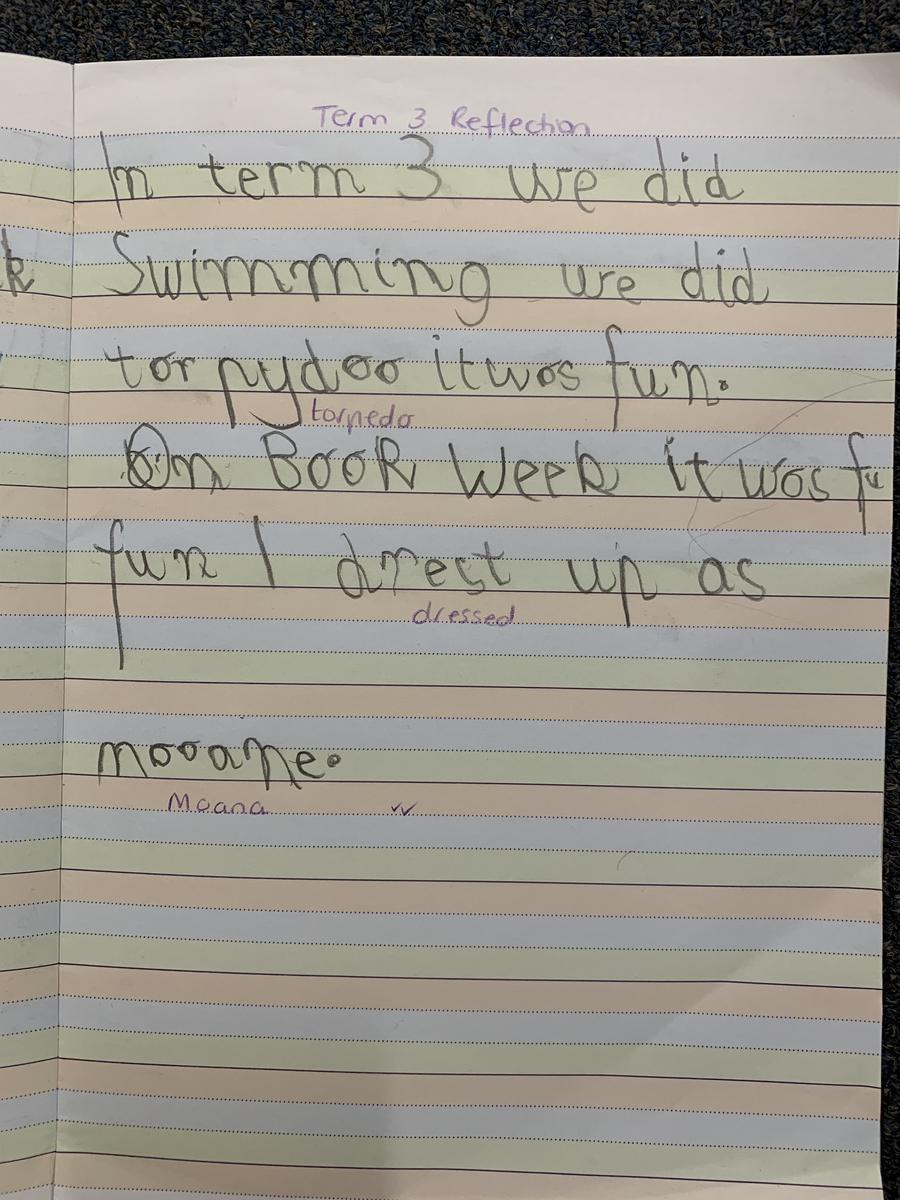 Term 3 Reflection
In term 3 we did
Swimming we did
torpydoo it wos fun.
torpedo
On Book Week it wos fu
fun I drest up as
dressed
mooane.
Moana